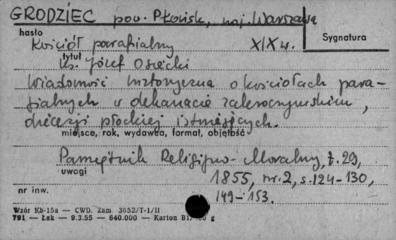 GRODZIEC pow. Płońsk, woj. Warszawa
hasło
Kościół parafialny XIX w.
Sygnatura
tytuł
Ks. Józef Osiecki
Wiadomość historyczna o kościołach para-
fialnych w dekanacie zakroczymskim,
diecezji płockiej istniejących.
miejsce, rok, wydawca, format, objętość
Pamiętnik Religijno-Moralny, t. 29,
uwagi
1855, nr. 2, s. 124-130,
149-153.
nr inw.
Wzór Kb-15a — CWD. Zam. 3652/T-1/II
791 — Łak — 9.3.55 — 640.000 — Karton B1/ g